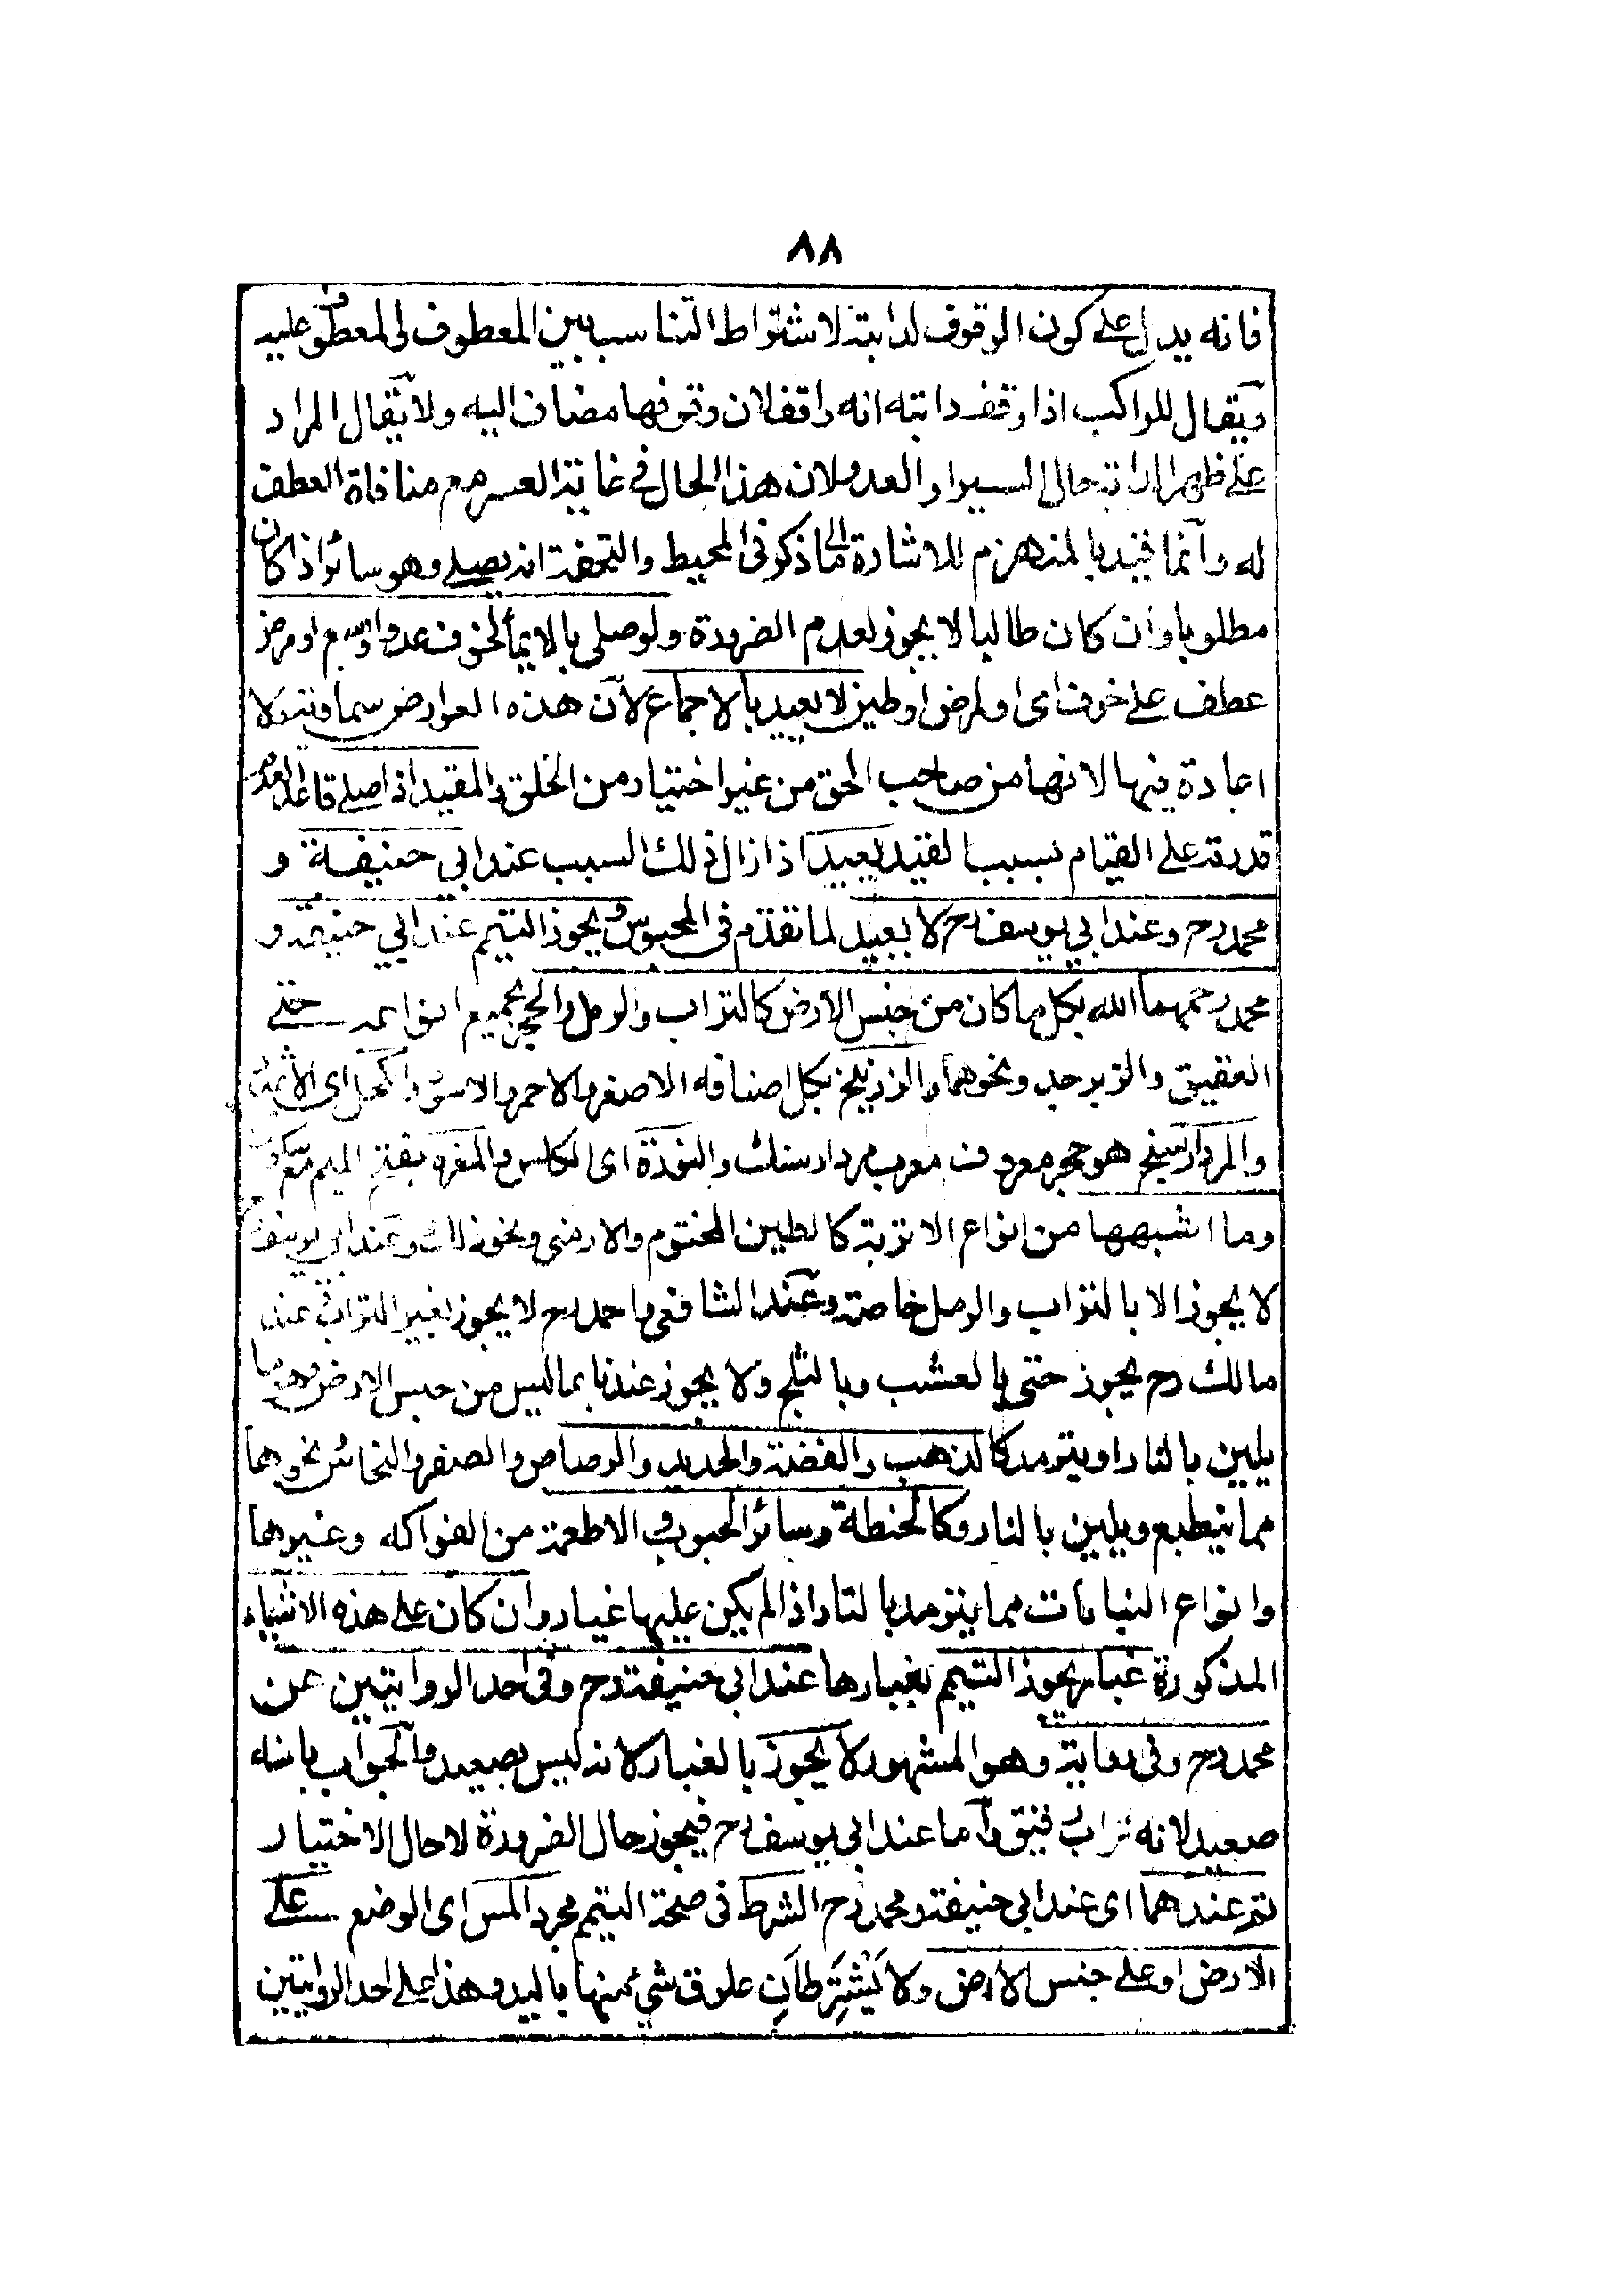 ٨٨
فانه يدل على كون الوقوف لدابته لاشتراط التناسب بين المعطوف والمعطوف عليه
ويقال للراكب اذا وقف دابته انه واقف لان وقوفها مضاف اليه ولا يقال المراد
على ظهر الدابة حال السير او العدو لان هذا الحال في غاية العسر مع منافاة العطف
له وانما قيد بالمنهزم للاشارة الى ما ذكر فى المحيط والتحفة انه يصلى وهو سائر اذا كان
مطلوبا وان كان طالبا لا يجوز لعدم الضرورة ولو صلى بالايماء لخوف عدو او سبع او مرض
عطف على خوف اى او لمرض او طين لا يعيد بالاجماع لان هذه العوارض سماوية ولا
اعادة فيها لانها من صاحب الحق من غير اختيار من الخلق والمقيد اذا صلى قاعدا لعدم
قدرته على القيام بسبب القيد يعيد اذا زال ذلك السبب عند ابي حنيفة و
محمد رح وعند ابي يوسف رح لا يعيد لما تقدم فى المحبوس ويجوز التيمم عند ابي حنيفة و
محمد رحمهما الله بكل ما كان من جنس الارض كالتراب والرمل والحجر بجميع انواعه حتى
العقيق والزبرجد ونحوهما والزرنيخ بكل اصنافه الاصفر والاحمر والاسود والكحل اى الاثمد
والمرداسنج هو حجر معروف معرب مردارسنك والنورة اى الكلس والمغرة بفتح الميم مع سكون
وما اشبهها من انواع الاتربة كالطين المختوم والارمنى ونحو ذلك وعند ابى يوسف
لا يجوز الا بالتراب والرمل خاصة وعند الشافعى واحمد رح لا يجوز بغير التراب وعند
مالك رح يجوز حتى بالعشب وبالثلج ولا يجوز عندنا بما ليس من جنس الارض وهو ما
يلين بالنار او يترمد كالذهب والفضة والحديد والرصاص والصفر والنحاس نحوهما
مما ينطبع ويلين بالنار وكالحنطة وسائر الحبوب والاطعمة من الفواكه وغيرهما
وانواع النباتات مما يترمد بالنار اذا لم يكن عليها غبار وان كان على هذه الاشياء
المذكورة غبار يجوز التيمم بغبارها عند ابى حنيفة رح وفى احد الروايتين عن
محمد رح وفى رواية وهو المشهور لا يجوز بالغبار لانه ليس بصعيد والجواب بانه
صعيد لانه تراب رقيق واما عند ابى يوسف رح فيجوز حال الضرورة لا حال الاختيار
ثم عندهما اى عند ابى حنيفة ومحمد رح الشرط فى صحة التيمم مجرد المس اى الوضع على
الارض او على جنس الارض ولا يَشترِطانِ علوق شئ منها باليد وهذا على احد الروايتين